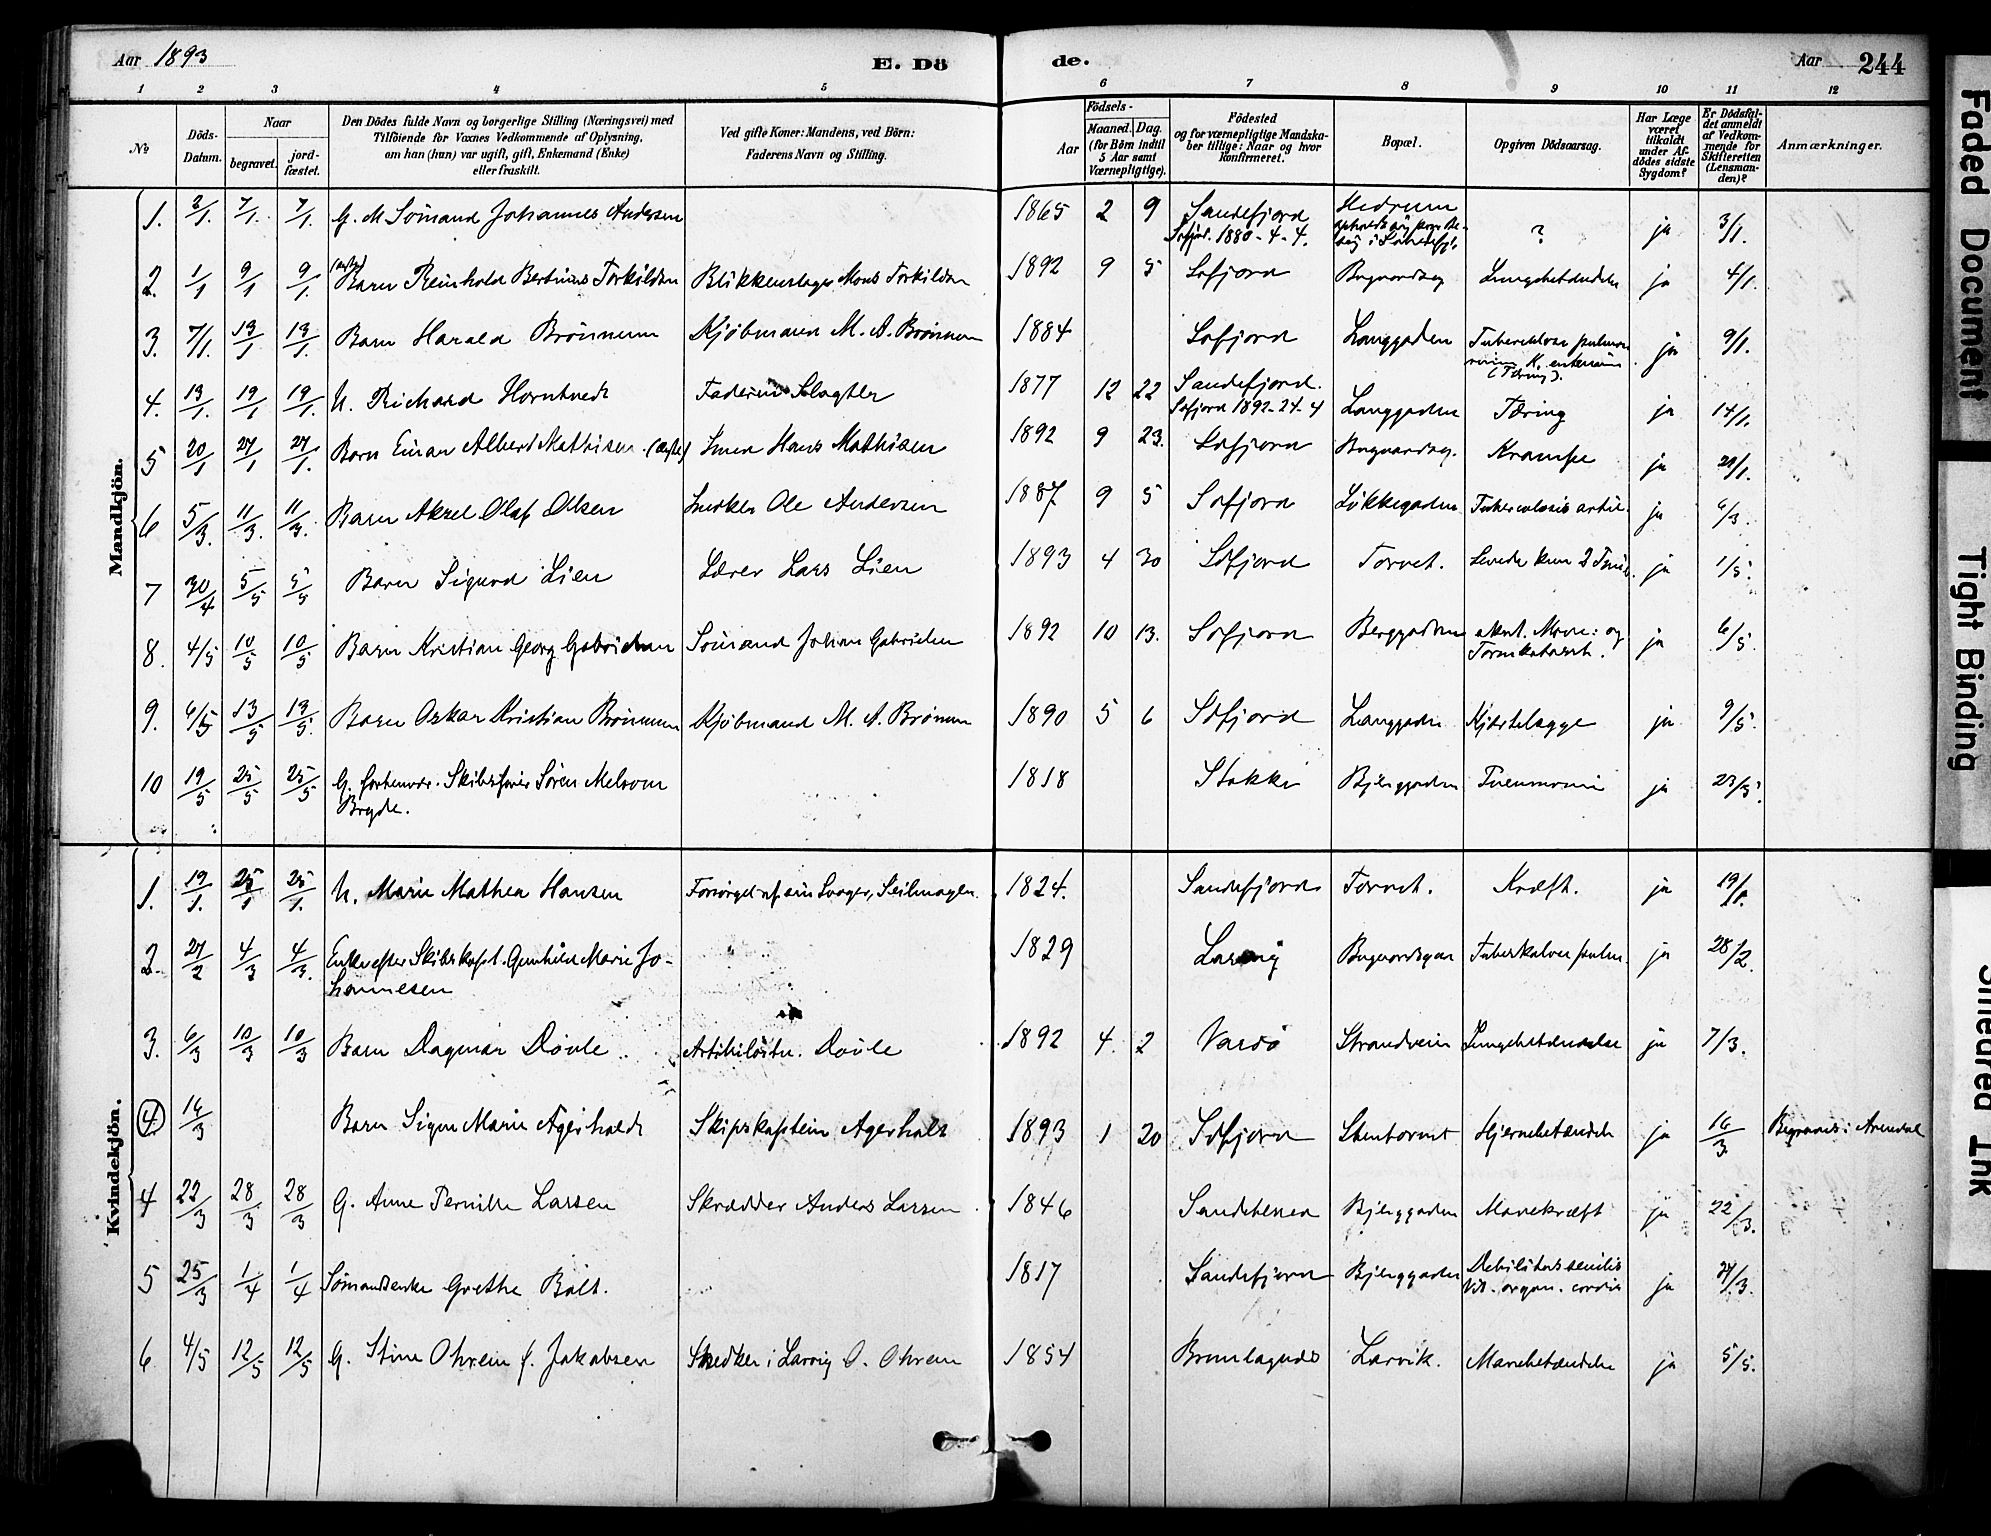 Aar 1893
E. Dö
de.
Aar
244
1 2 3 4 5 6 7 8 9 10 11 12
No
Döds-
Datum.
Naar
begravet.
jord-
fæstet.
Den Dödes fulde Navn og borgerlige Stilling (Næringsvei) med
Tilföiende for Voxnes Vedkommende af Oplysning,
om han (hun) var ugift, gift, Enkemand (Enke)
eller fraskilt.
Ved gifte Koner: Mandens, ved Börn:
Faderens Navn og Stilling.
Födsels-
Aar
Maaned. Dag.
(for Börn indtil
5 Aar samt
Værnepligtige).
Födested
og for værnepligtige Mandska-
ber tillige: Naar og hvor
konfirmeret.
Bopæl.
Opgiven Dödsaarsag.
Har Læge
været
tilkaldt
under Af-
dödes sidste
Sygdom?
Er Dödsfal-
det anmeldt
af Vedkom-
mende for
Skifteretten
(Lensman-
den)?
Anmærkninger.
Mandkjön.
1. 2/1. 7/1. 7/1. G. M Sömand Johannes Andersen 1865 2 9 Sandefjord Hedrum ? ja 3/1.
Sefjord. 1880-4-4.
2. 1/1 9/1 9/1. Barn Reinhold Bertinius Torkildsen Blikkenslager Mons Torkildsen 1892 9 5 Sefjord Bugaardsg Lungebetændelse ja 4/1.
3. 7/1. 13/1 13/1. Barn Harald Brönnum Kjöbmand M. A. Brönnum 1884 Sefjord Langgaden Tuberkulose pulmon ja 9/1.
(Tæring).
4. 13/1. 19/1 19/1. U. Richard Horntvedt Faderen Slagter 1877 12 22 Sandefjord. Langgaden Tæring ja 14/1.
Sefjord 1892-24-4
5 20/1 27/1 27/1. Barn Einar Albert Mathisen. Smed Hans Mathisen 1892 9 23. Sefjord Bugaardsg. Krampe ja 21/1.
6 5/3. 11/3. 11/3. Barn Aksel Olaf Olsen Snedker Ole Andersen 1887 9 5 Sefjord Lökkegaden Tuberculosis ja 6/3.
7 30/4 5/5 5/5 Barn Sigurd Lien Lærer Lars Lien 1893 4 30 Sefjord Torvet. Levede kun 2 Timer. ja 1/5.
8. 4/5 10/5 10/5 Barn Kristian Georg Gabrielsen Sömand Johan Gabrielsen 1892 10 13. Sefjord Berggaden akut. Mave: og ja 6/5.
Tarmkatarrh.
9. 6/5 13/5 13/5. Barn Oskar Kristian Brönnum Kjöbmand M. A. Brönnum 1890 5 6 Sefjord Langgaden Kjertelsyge ja 9/5.
10 19/5 25/5 25/5 G. forhenvær. Skibsförer Sören Melsom 1818 Stokke Bjerggaden Pneumonie ja 23/5.
Bryde.
Kvindekjön.
1. 19/1. 25/1 25/1. U. Marie Mathea Hansen Forsörget af sin Svoger, Seilmager. 1824. Sandefjord Torvet. Kræft. ja 19/1.
2. 27/2 4/3 4/3. Enke efter Skibskapt. Gunhild Marie Jo- 1829 Larvig Bugaardsgaden Tuberkulose pulm. ja 28/2.
hannesen
3. 6/3 10/3 10/3 Barn Dagmar Dövle Dövle 1892 4. 2 Vardö Strandveien Lungebetændelse ja 7/3.
(4.) 16/3 Barn Signe Marie Agerholdt Skipskaptein Agerholt 1893 1 20 Sefjord Stentorvet Hjernebetændelse ja 16/3 Begraves i Arendal
4 22/3 28/3 28/3 G. Anne Pernille Larsen Skrædder Anders Larsen 1846 Sandeherred Bjerggaden Mavekræft ja 22/3.
5 25/3 1/4 1/4 Sömandsenke Grethe Bolt. 1817 Sandefjord Bjerggaden Debilitas senilis ja 27/3.
Vit. organ. cordis
6 4/5 12/5 12/5 G. Stine Ohrem f. Jakobsen Snedker i Larvig O. Ohrem 1854 Brunlagnæs Larvik. Mavebetændelse ja 5/5.
Faded Document
Tight Binding
Smeared Ink